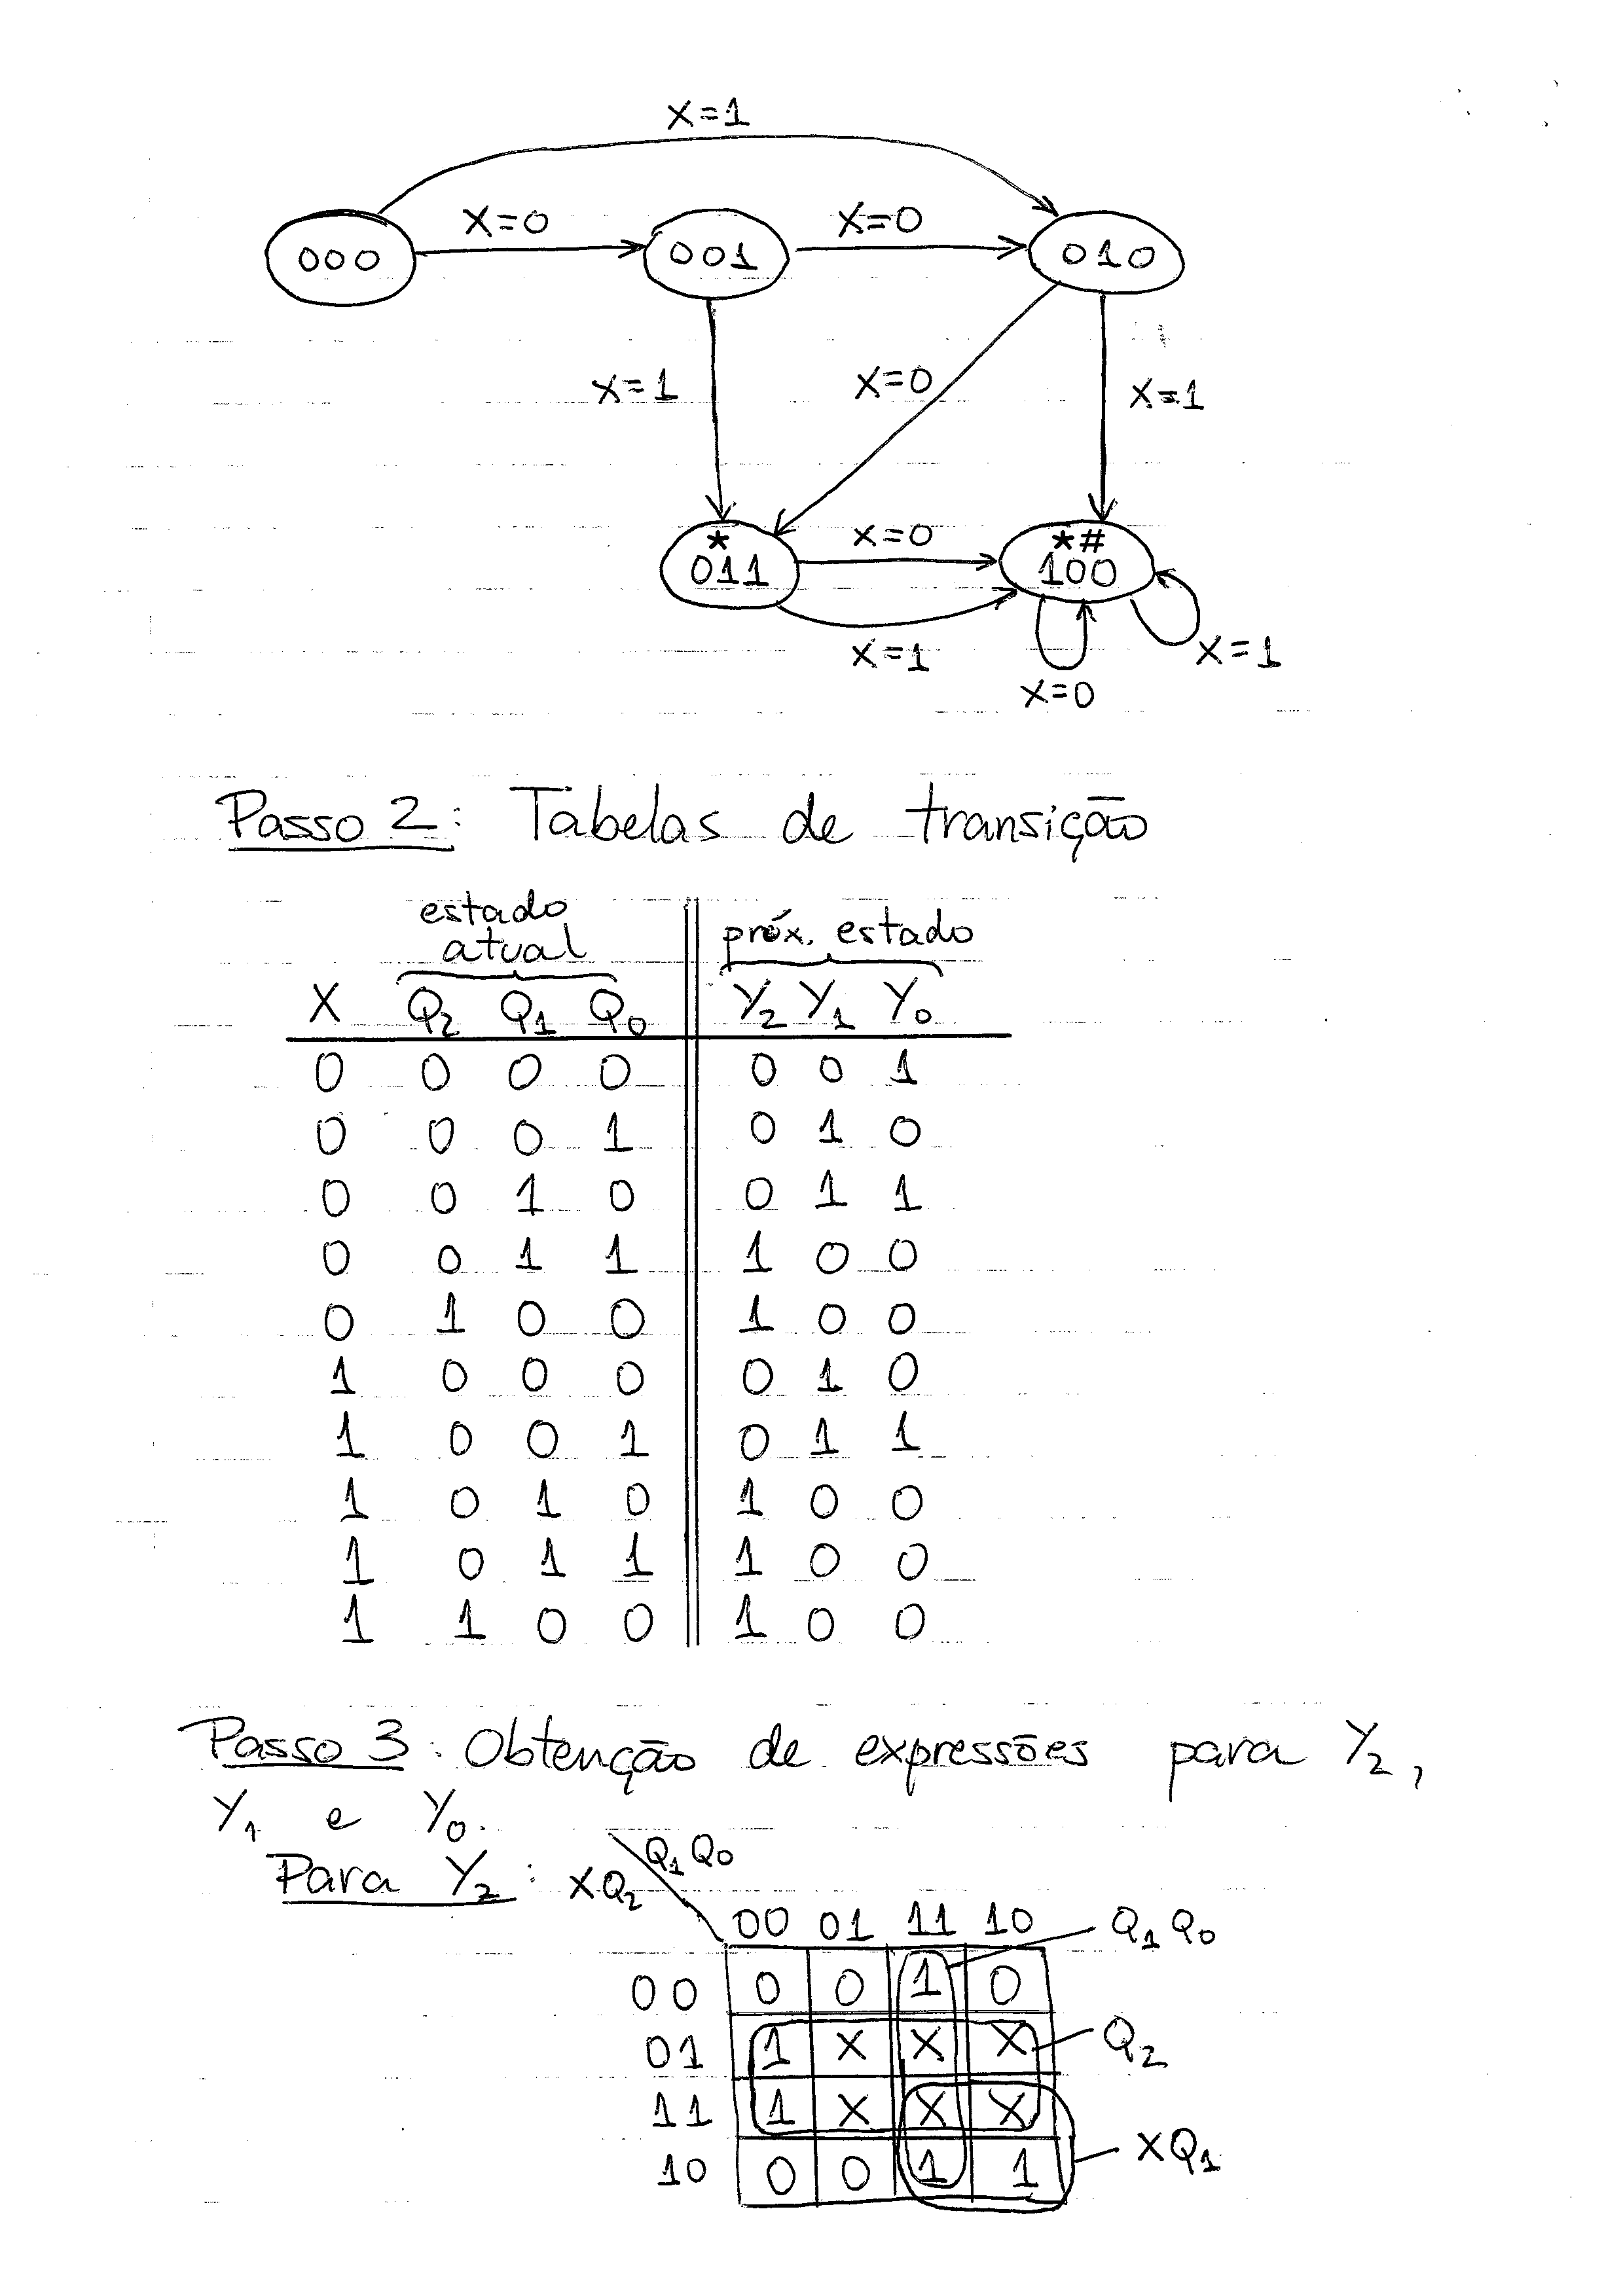 X=1
000 X=0 001 X=0 010
X=1 X=0 X=1
* *#
011 X=0 100
X=1 X=0 X=1
Passo 2: Tabelas de transição
estado atual próx. estado
X Q2 Q1 Q0 Y2 Y1 Y0
0 0 0 0 0 0 1
0 0 0 1 0 1 0
0 0 1 0 0 1 1
0 0 1 1 1 0 0
0 1 0 0 1 0 0
1 0 0 0 0 1 0
1 0 0 1 0 1 1
1 0 1 0 1 0 0
1 0 1 1 1 0 0
1 1 0 0 1 0 0
Passo 3: Obtenção de expressões para Y2,
Y1 e Y0.
Para Y2: XQ2 Q1 Q0
00 01 11 10 Q1 Q0
00 0 0 1 0
01 1 X X X Q2
11 1 X X X
10 0 0 1 1 XQ1